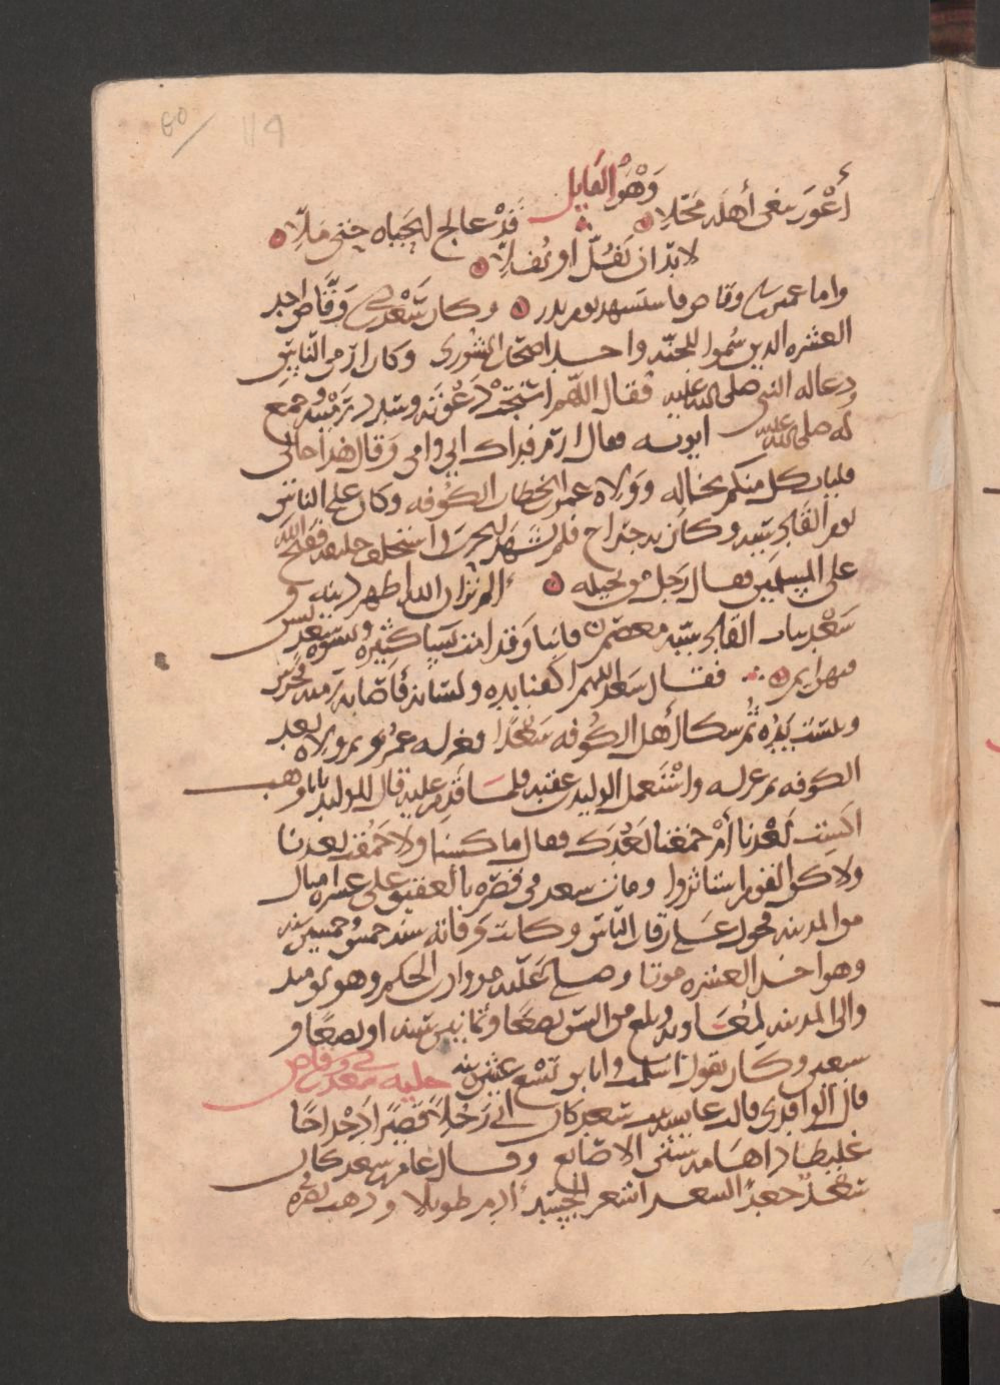 وَهْوُ القايل
أعْوَر يبغى أهله محَلّا قَدْ عالج الحَياه حتى مَلّا
لابدّ ان يَفُلّ او يُفَلّا
واما عمير بن ابي وقاص فاستشهد يوم بدر وكان سَعْد بن ابي وَقَّاص احد
العشره الذين سُموا للجنّه واحد اصحاب الشورى وكان ارمى النّاس
ودعا له النبي صلى الله عليه فقال اللّهم استجبْ دَعْوَته وسدد رَمْيته وجمع
له صلى الله عليه ابويه فقال ارم فداك ابي وامي وقال هذا خالى
فليات كل منكم بخاله وولاه عمر بن الخطاب الكُوفه وكان على الناس
يوم القادسيّه وكان به جراح فلم يَشْهَد الحرب واستخلف خليفه ففتح الله
على المسلمين فقال رَجل من بجيله الم تر ان الله اظهر دينه و
سَعْد بباب القادسيّه معصم فابنا وقد امت نِسا كثيره ونسوه سعد ليس
فيهن ايم فقال سعد اللهم اكفنا يده ولسانه فاصابته رميه فخرس
ويبست يَدُه ثُم شكا أهل الكُوفه سَعْدًا فعزله عُمر ثم ولاه بعد
الكوفه ثم عزله واسْتَعمل الوليد بن عقبه فلمّا قَدِم عليه قال له يا با وهب
اكسْت بَعْدنا أمْ حَمُقنا بَعْدَك فقال ما كسنا ولا حَمُقت بعدنا
ولاكن القوم استاثروا ومات سعد في قصره بالعقيق على عشره اميال
من المدينه فحمل على رقاب النّاس وكانت وفاته سنه خمس وخمسين سنه
وهو اخر العشره موتا وصلى عَليه مروان بن الحكم وهو يوميد
والى المدينه لمعَاويه وبلغ من السن بضعًا وثمانين سنه او بضعًا و
سبعين وكان يقول اسلمت وانا بن تسْع عشره سنه حليه سعد بن ابي وقاص
قال الواقدى قالت عايشه بنت سعد كان ابي رَجُلًا قصيرًا دَحْداحًا
غليظا ذا هامه شثن الاصابع وقال عامر بن سعد كان
سعد جعدًا السعد اشعر الجسَد آدم طويلا وذهب بصره